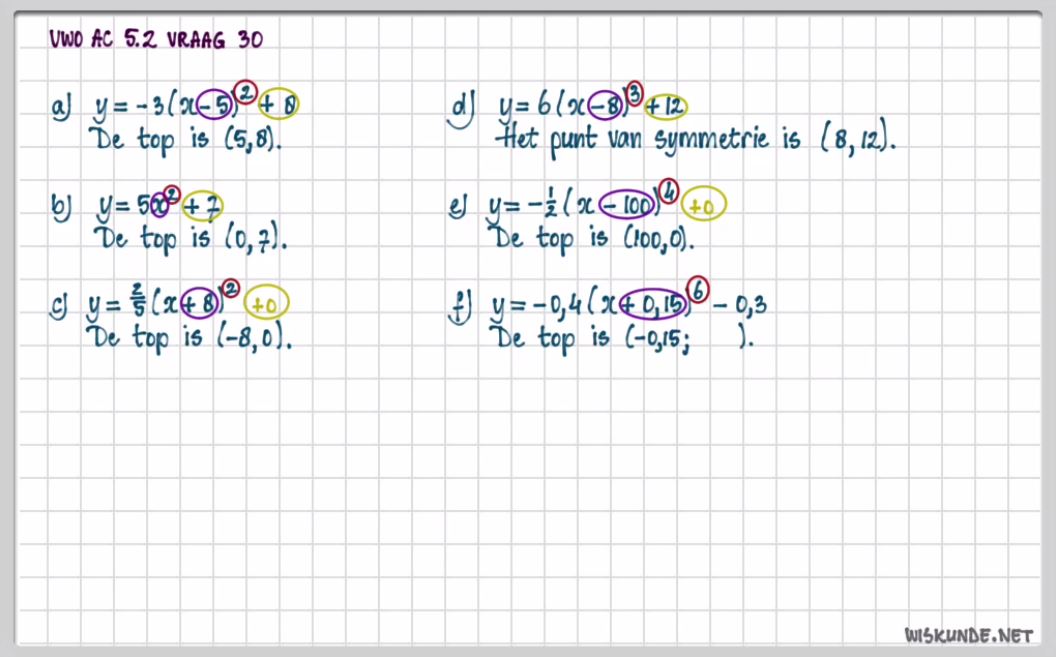 VWO AC 5.2 VRAAG 30
a) y = -3(x-5)² + 8
De top is (5,8).
b) y = 5x² + 7
De top is (0,7).
c) y = 2/5(x+8)² +0
De top is (-8,0).
d) y = 6(x-8)³ +12
Het punt van symmetrie is (8,12).
e) y = -1/2(x-100)⁴ +0
De top is (100,0).
f) y = -0,4(x+0,15)⁶ - 0,3
De top is (-0,15; ).
WISKUNDE.NET